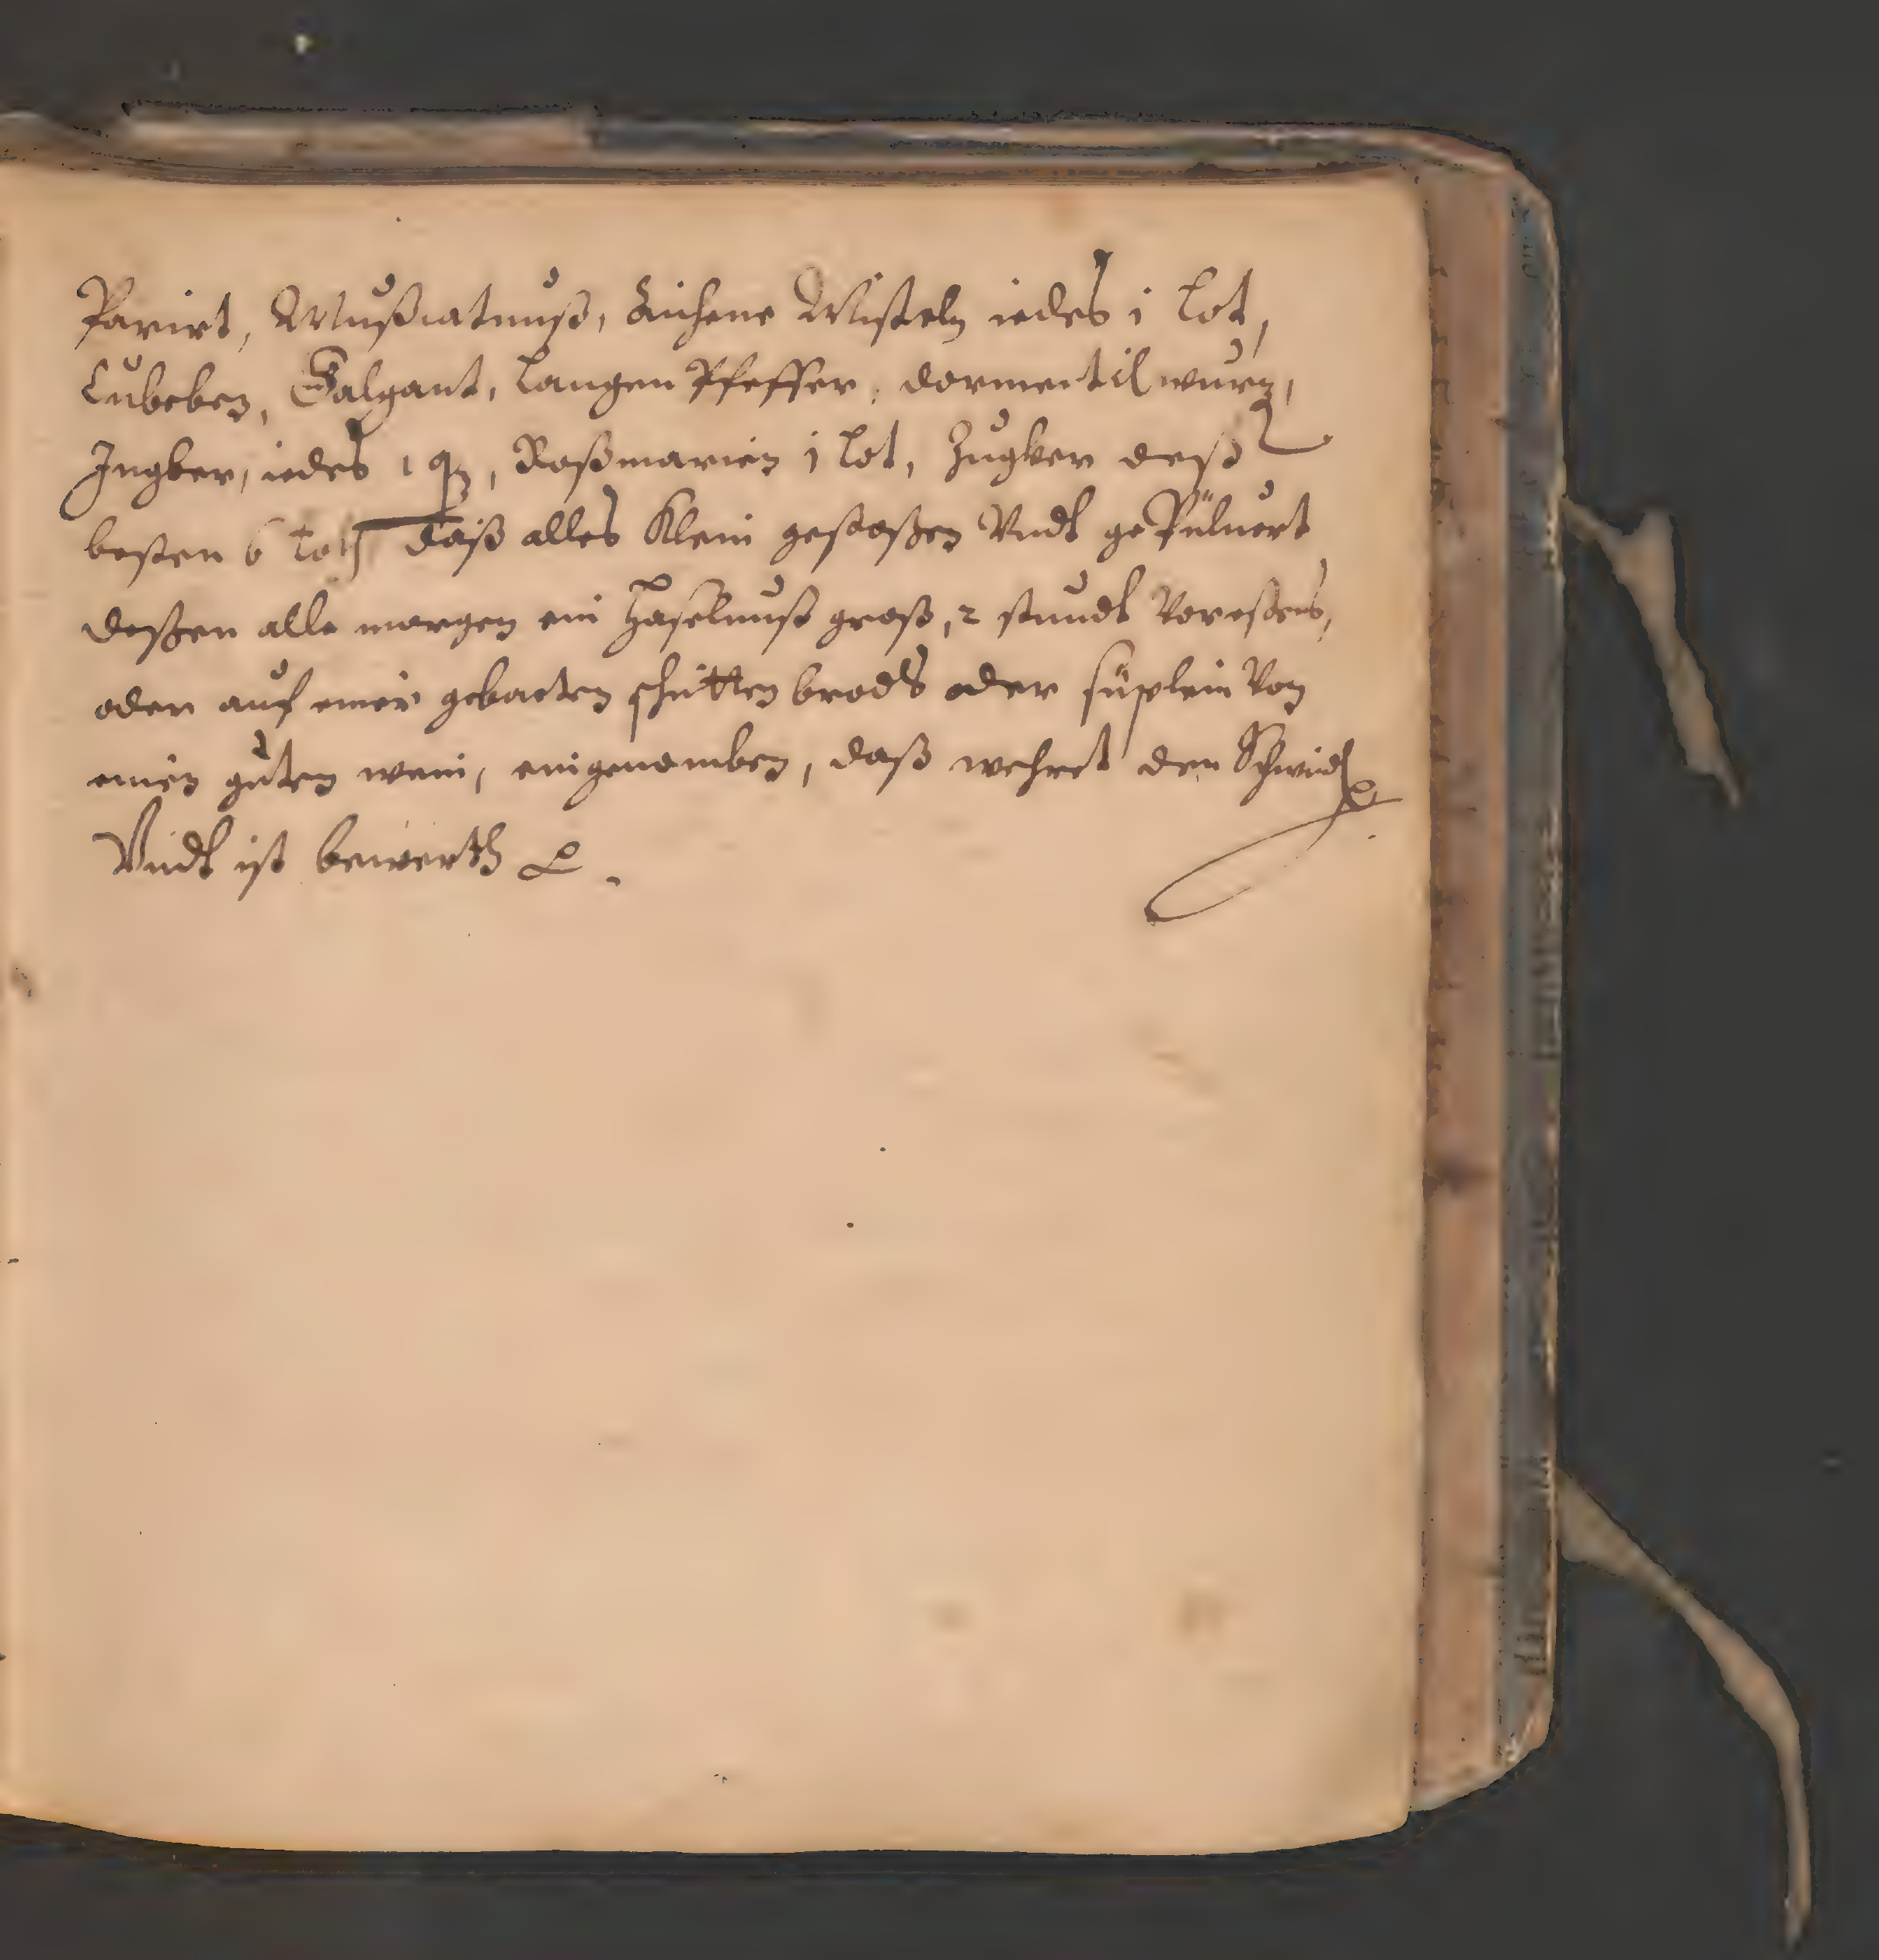 Parirt, Mußiatnuß, Aichene Misteln iedes 1 lot,
Cubeben, Galgant, langen Pfeffer, dormentil wurz,
Ingber, iedes 1 q, Roßmarien 1 lot, Zugker deß
besten 6 loth daß alles klein gestoßen Vndt gePüluert
deßen alle morgen ein haselnuß groß, 2 stundt Voreßens,
oder auf einer gebaeten schnitten brodts oder süplein Von
einen guten wein, eingenomben, daß wehret den Schwindl
Vndt ist bewerth